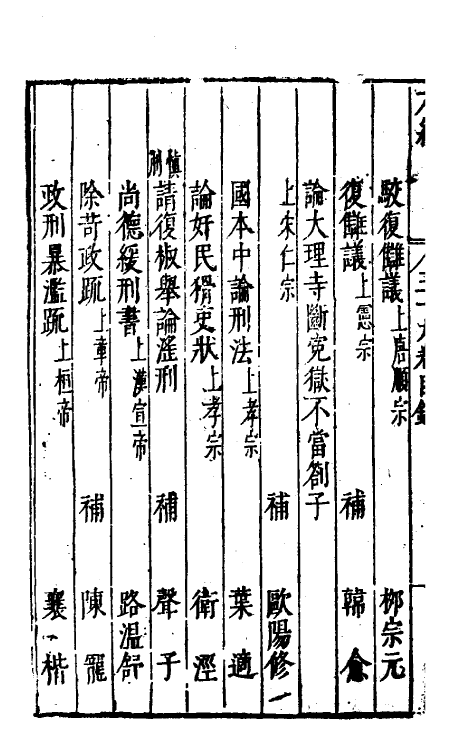 駮復讎議上唐順宗 柳宗元
復讎議上憲宗 補 韓愈
論大理寺斷寃獄不當劄子
上宋仁宗 補 歐陽修
國本中論刑法上孝宗 葉適
論奸民猾吏狀上孝宗 衛涇
慎刑
請復椒舉論淫刑 補 聲子
尚德緩刑書上漢宣帝 路溫舒
除苛政䟽上章帝 補 陳寵
政刑暴濫䟽上桓帝 襄楷